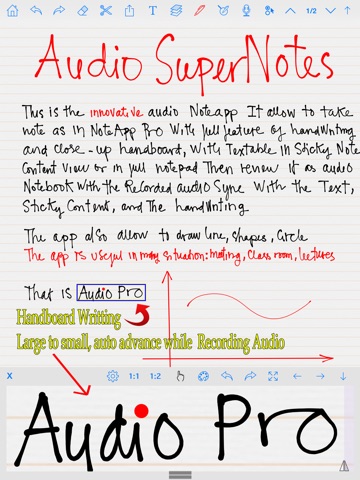 1/2
Audio SuperNotes
This is the innovative audio Noteapp It allow to take
note as in NoteApp Pro With full feature of handWriting
and close-up handboard, With Textable in Sticky Note
Content View or in full notepad Then review it as audio
Notebook With the Recorded audio Sync With the Text,
Sticky Content, and The handWriting
The app also allow to draw line, shapes, Circle
The app is useful in many situation: meeting, Class room, lectures
That is Audio Pro
Handboard Writting
Large to small, auto advance while Recording Audio
X 1:1 1:2
Audio Pro